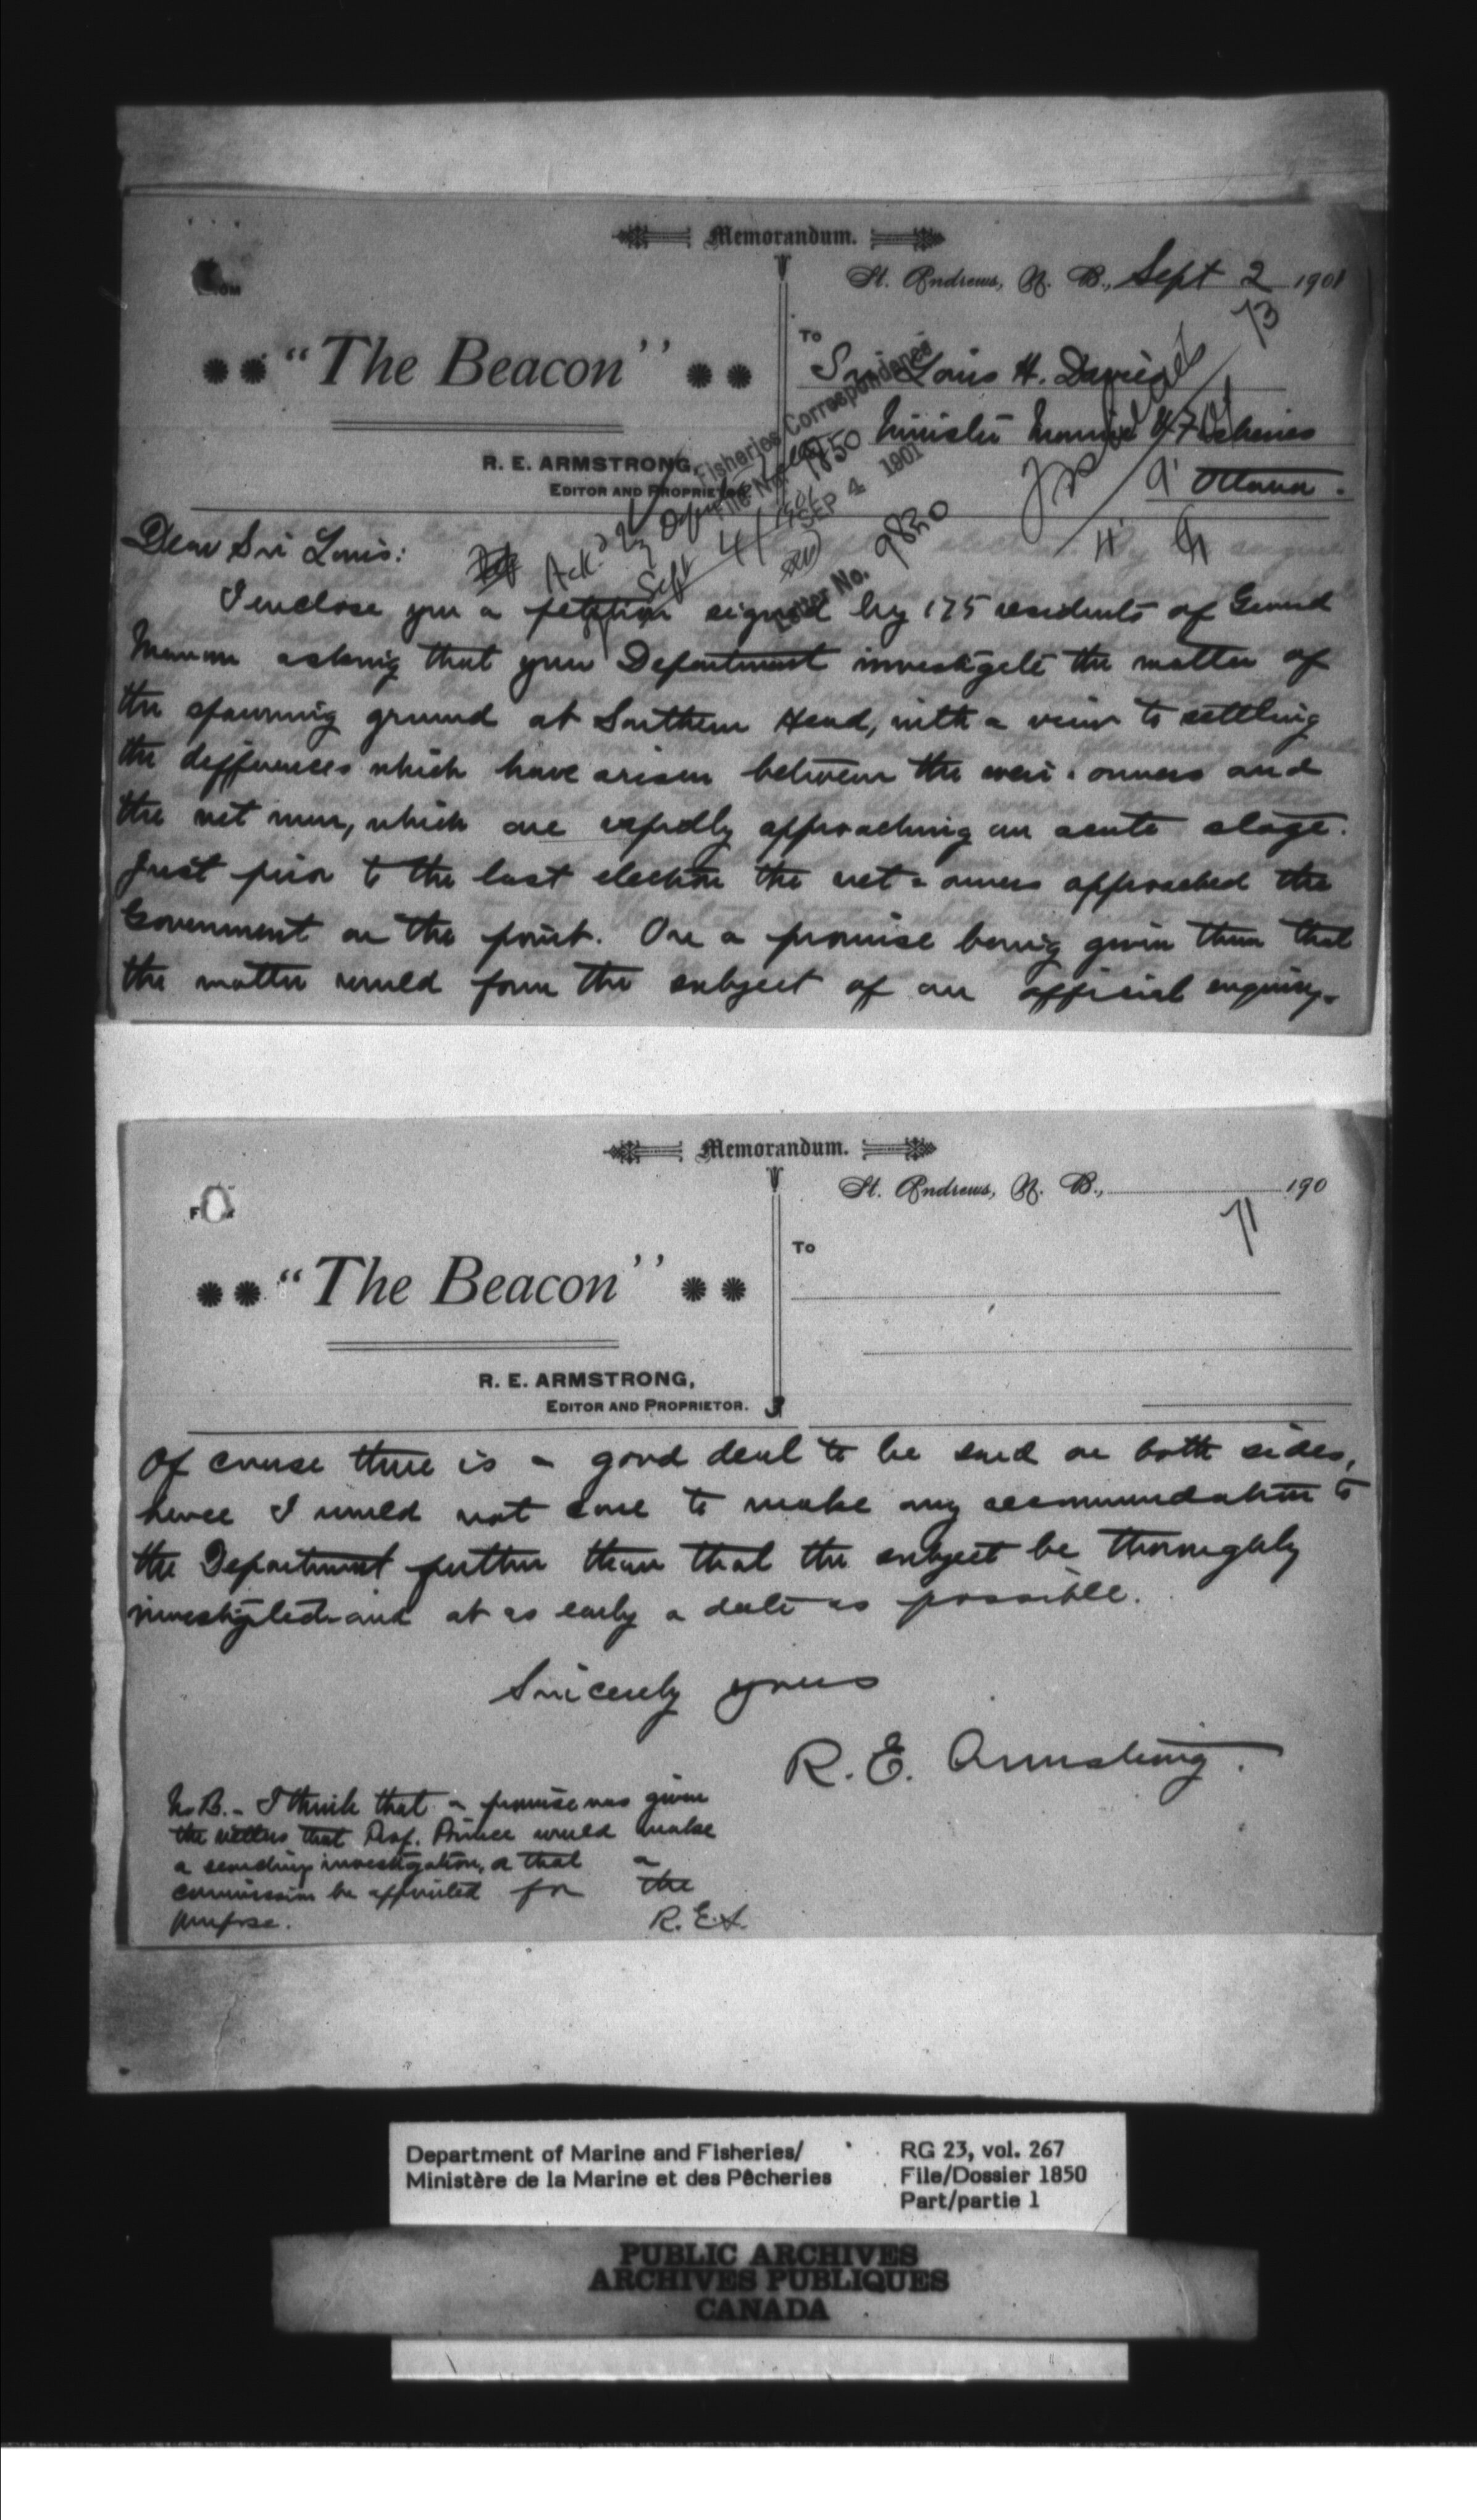 Memorandum.
St. Andrews, N. B., Sept 2 1901
73
"The Beacon"
R. E. ARMSTRONG,
EDITOR AND PROPRIETOR.
To
Sir Louis H. Davies
Minister Marine & Fisheries
Ottawa.
Fisheries Correspondence
File No. 1850
SEP 4 1901
Letter No. 9830
Ack'd by
Sept 4/1901
Dear Sir Louis:
I enclose you a petition signed by 175 residents of Grand
Manan asking that your Department investigate the matter of
the spawning ground at Southern Head, with a view to settling
the differences which have arisen between the weir-owners and
the net men, which are rapidly approaching an acute stage.
Just prior to the last election the net-owners approached the
Government on the point. On a promise being given them that
the matter would form the subject of an official enquiry-
Memorandum.
St. Andrews, N. B., 190
71
"The Beacon"
R. E. ARMSTRONG,
EDITOR AND PROPRIETOR.
To
3
Of course there is a good deal to be said on both sides,
hence I would not care to make any recommendation to
the Department further than that the subject be thoroughly
investigated and at as early a date as possible.
Sincerely yours
R. E. Armstrong.
N.B. - I think that a promise was given
the netters that Prof. Prince would make
a searching investigation, or that a
commission be appointed for the
purpose.
R.E.A.
Department of Marine and Fisheries/
Ministère de la Marine et des Pêcheries
RG 23, vol. 267
File/Dossier 1850
Part/partie 1
PUBLIC ARCHIVES
ARCHIVES PUBLIQUES
CANADA